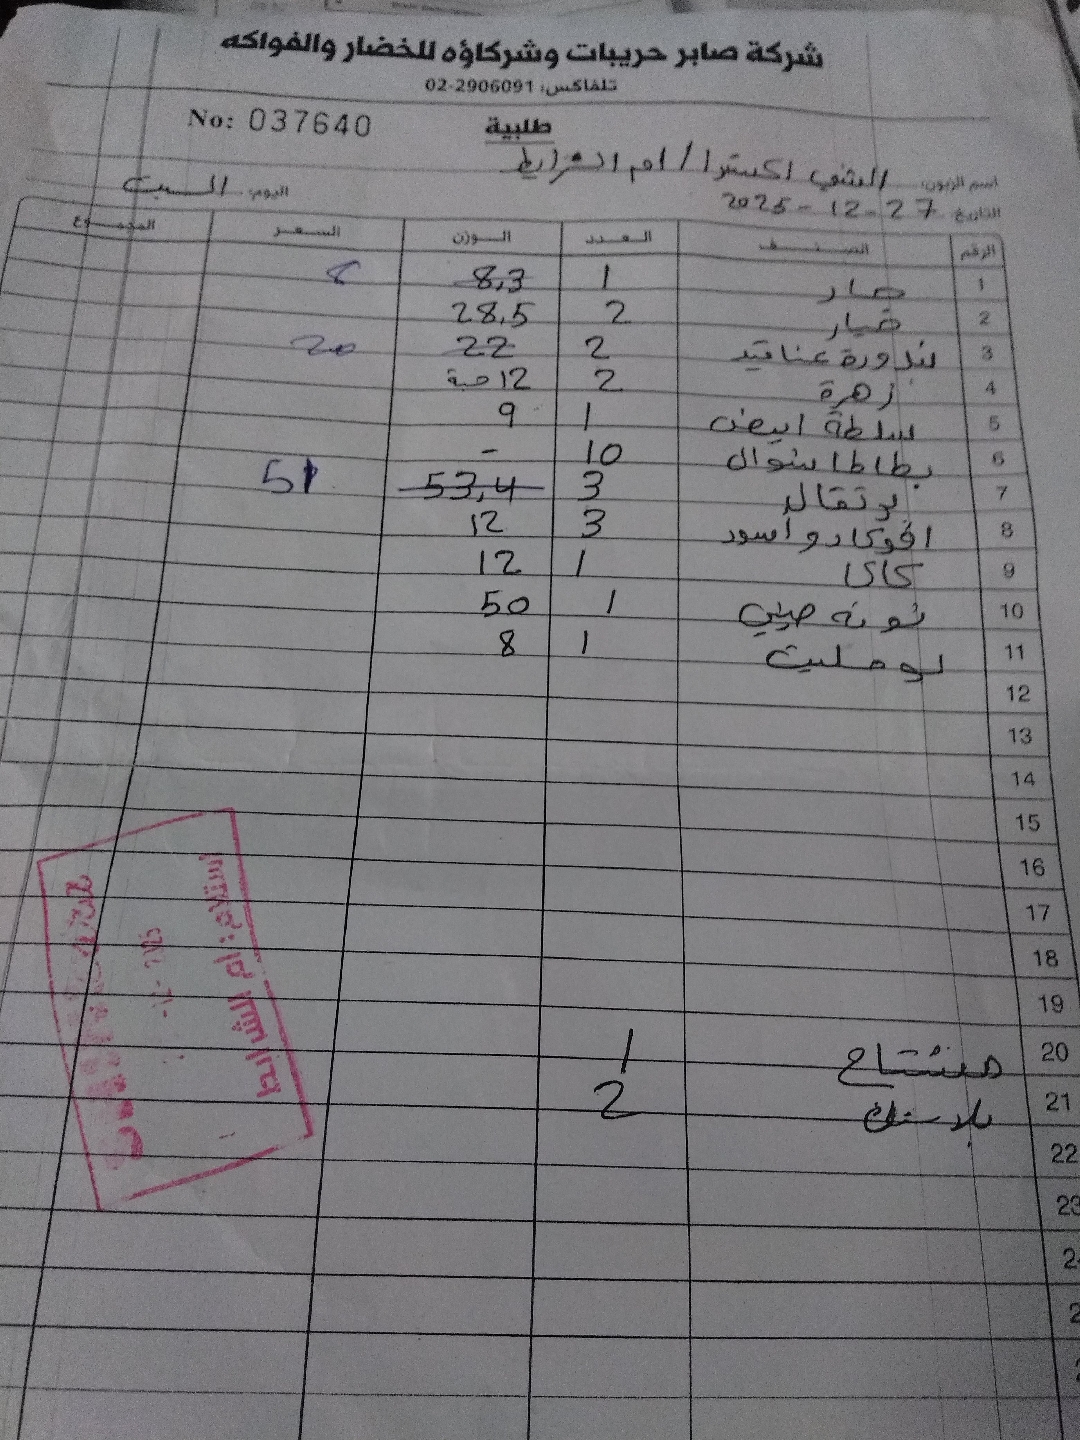 شركة صابر حريبات وشركاؤه للخضار والفواكه
تلفاكس: 02-2906091
No: 037640 طلبية
اسم الزبون: الشني اكسترا / ام الشرايط اليوم: السبت
التاريخ 27-12-2025
الرقم الصنف العدد الوزن السعر المجموع
1 1 8,3 8
2 خيار 2 28,5
3 بندورة عناقيد 2 22 20
4 زهرة 2 12 حبة
5 سلطة ابيض 1 9
6 بطاطا شوال 10 -
7 برتقال 3 53,4 51
8 افوكادو اسود 3 12
9 كاكا 1 12
10 ثومه صيني 1 50
11 بوملیت 1 8
12
13
14
15
16
17
18
19
20 مشتاح 1
21 بلاستك 2
22
23
استلام: ام الشرايط